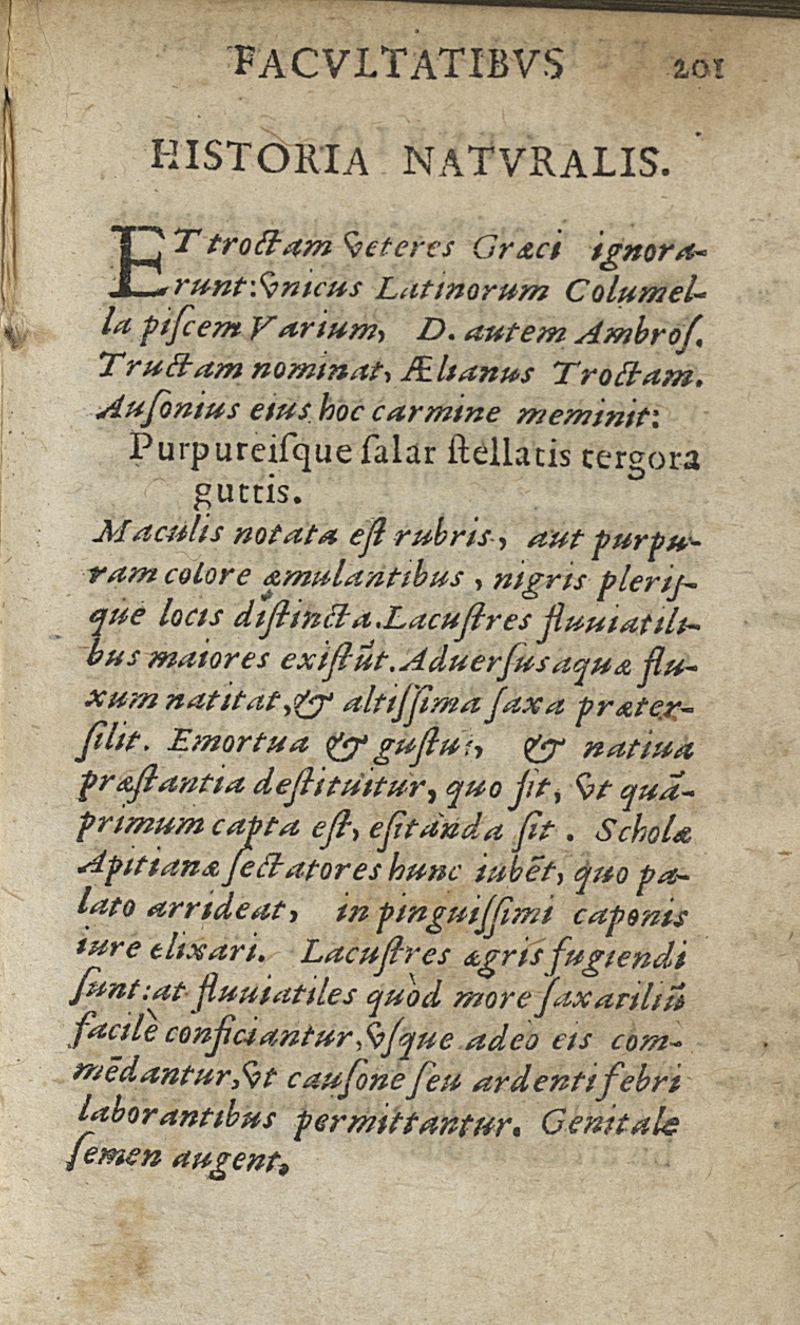 FACVLTATIBVS 201
HISTORIA NATVRALIS.
ET troctam veteres Græci ignora-
runt: vnicus Latinorum Columel-
la piſcem Varium, D. autem Ambroſ.
Tructam nominat, Ælianus Troctam.
Auſonius eius hoc carmine meminit:
Purpureiſque ſalar ſtellatis tergora
guttis.
Maculis notata eſt rubris, aut purpu-
ram colore æmulantibus, nigris pleriſ-
que locis diſtincta. Lacuſtres fluuiatili-
bus maiores exiſtũt. Aduerſus aquæ flu-
xum natitat, & altiſſima ſaxa præter-
ſilit. Emortua & guſtus, & natiua
præſtantia deſtituitur, quo fit, vt quã-
primum capta eſt, eſitanda ſit. Scholæ
Apitianæ ſectatores hunc iubẽt, quo pa-
lato arrideat, in pinguiſſimi caponis
iure elixari. Lacuſtres ægris fugiendi
ſunt: at fluuiatiles quòd more ſaxatiliũ
facilè conficiantur, vſque adeò eis com-
mẽdantur, vt cauſone ſeu ardenti febri
laborantibus permittantur. Genitale
ſemen augent.